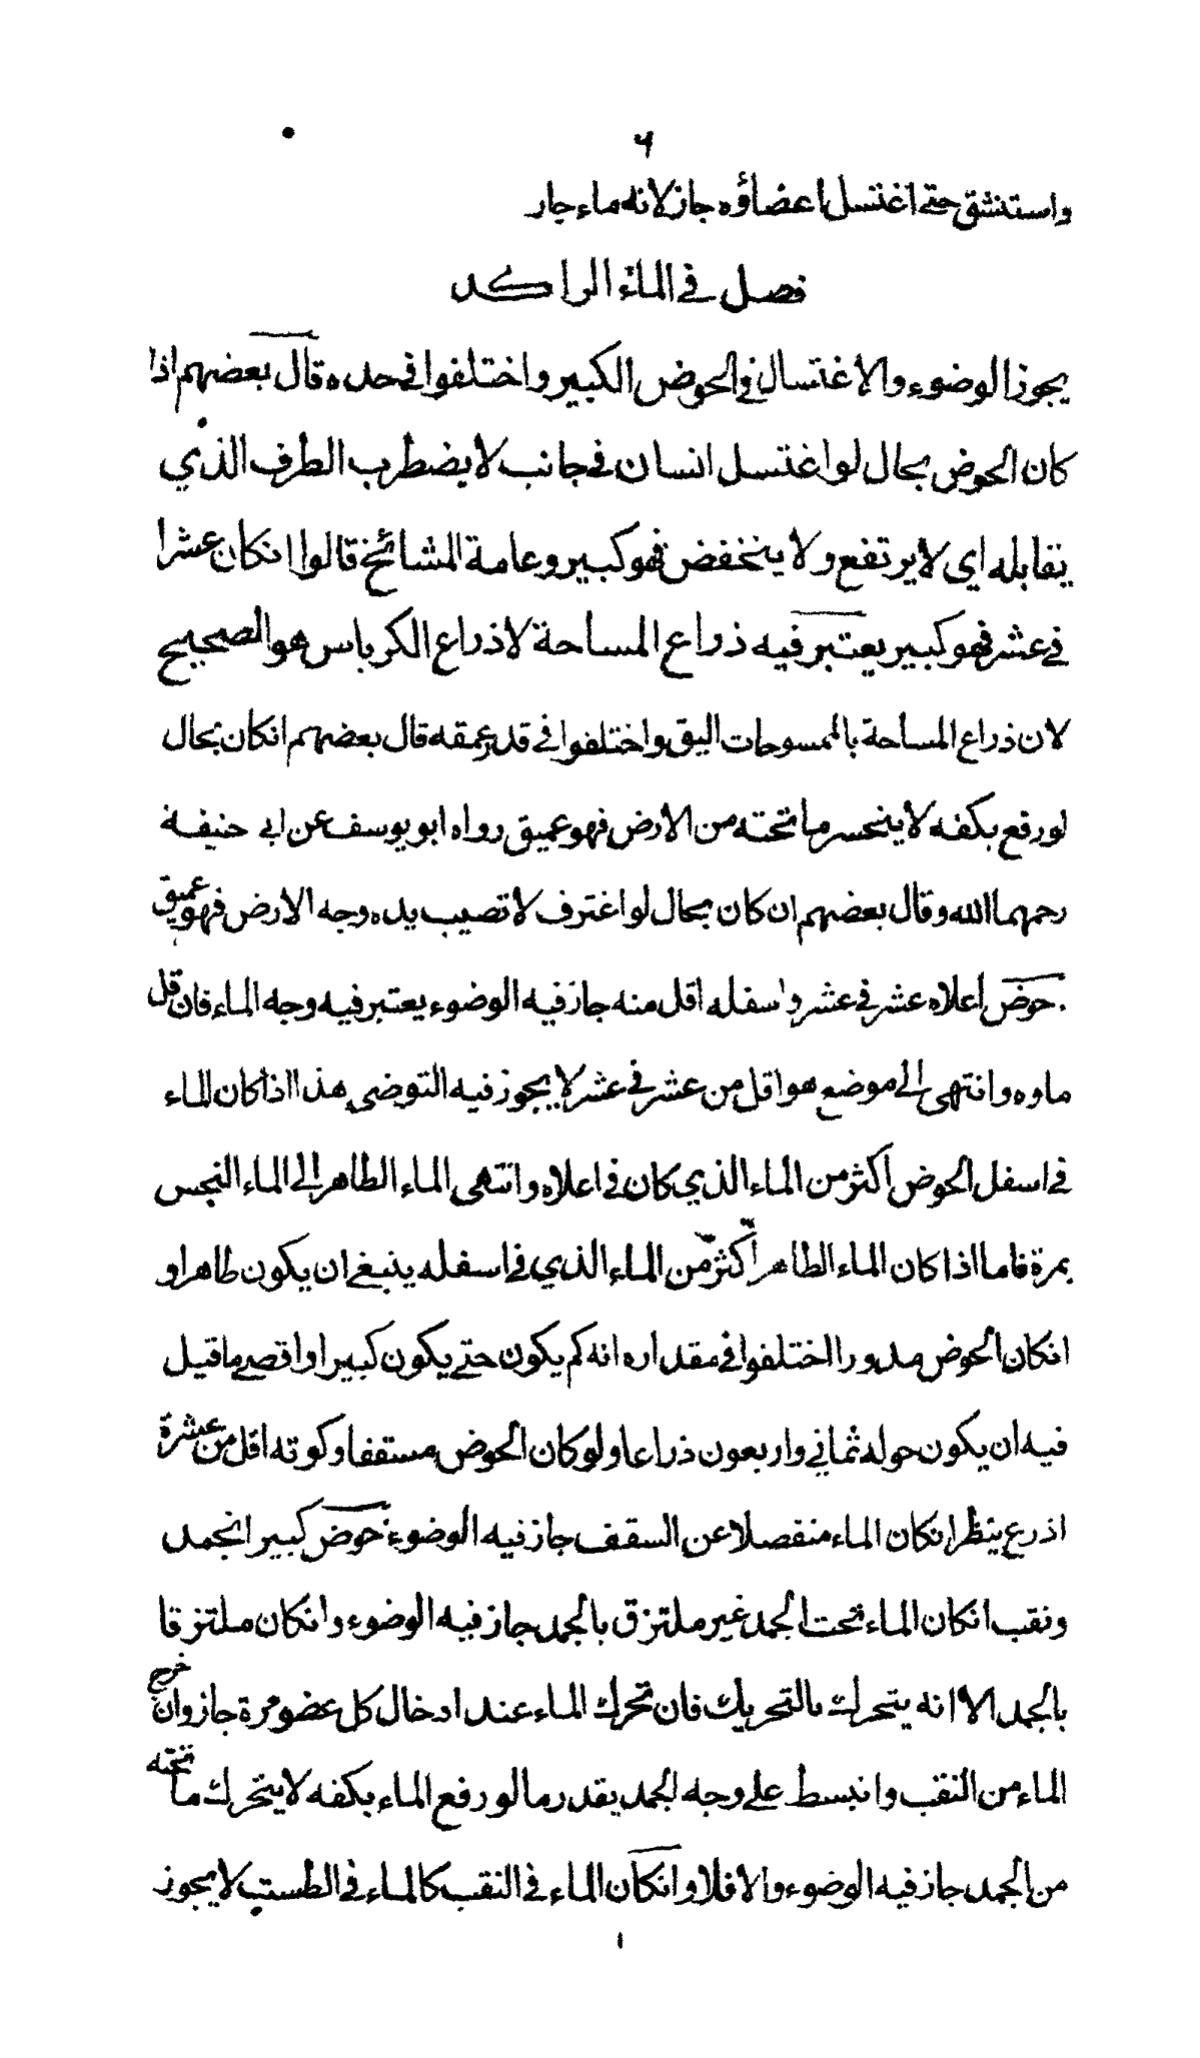 ٦
واستنشق حتى اغتسل اعضاؤه جاز لانه ماء جار
فصل في الماء الراكد
يجوز الوضوء والاغتسال في الحوض الكبير واختلفوا في حده قال بعضهم اذا
كان الحوض بحال لو اغتسل انسان في جانب لا يضطرب الطرف الذي
يقابله اي لا يرتفع ولا ينخفض فهو كبير وعامة المشائخ قالوا انكان عشرا
في عشر فهو كبير يعتبر فيه ذراع المساحة لا ذراع الكرباس هو الصحيح
لان ذراع المساحة بالممسوحات اليق واختلفوا في قدر عمقه قال بعضهم انكان بحال
لو رفع بكفه لا ينحسر ما تحته من الارض فهو عميق رواه ابو يوسف عن ابي حنيفة
رحمهما الله وقال بعضهم ان كان بحال لو اغترف لا تصيب يده وجه الارض فهو عميق
. حوض اعلاه عشر في عشر واسفله اقل منه جاز فيه الوضوء يعتبر فيه وجه الماء فان قل
ماوه وانتهى الى موضع هو اقل من عشر في عشر لا يجوز فيه التوضي هذا اذا كان الماء
في اسفل الحوض اكثر من الماء الذي كان في اعلاه وانتهى الماء الطاهر الى الماء النجس
بمرة فاما اذا كان الماء الطاهر اكثر من الماء الذي في اسفله ينبغي ان يكون طاهرا و
انكان الحوض مدورا اختلفوا في مقداره انه كم يكون حتى يكون كبيرا واقصى ما قيل
فيه ان يكون حوله ثماني واربعون ذراعا ولو كان الحوض مسقفا وكوته اقل من عشرة
اذرع ينظر انكان الماء منفصلا عن السقف جاز فيه الوضوء حوض كبير انجمد
ونقب انكان الماء تحت الجمد غير ملتزق بالجمد جاز فيه الوضوء وانكان ملتزقا
بالجمد الا انه يتحرك بالتحريك فان تحرك الماء عند ادخال كل عضو مرة جاز وان خرج
الماء من النقب وانبسط على وجه الجمد بقدر ما لو رفع الماء بكفه لا يتحرك ما تحته
من الجمد جاز فيه الوضوء والا فلا وانكان الماء في النقب كالماء في الطست لا يجوز
١